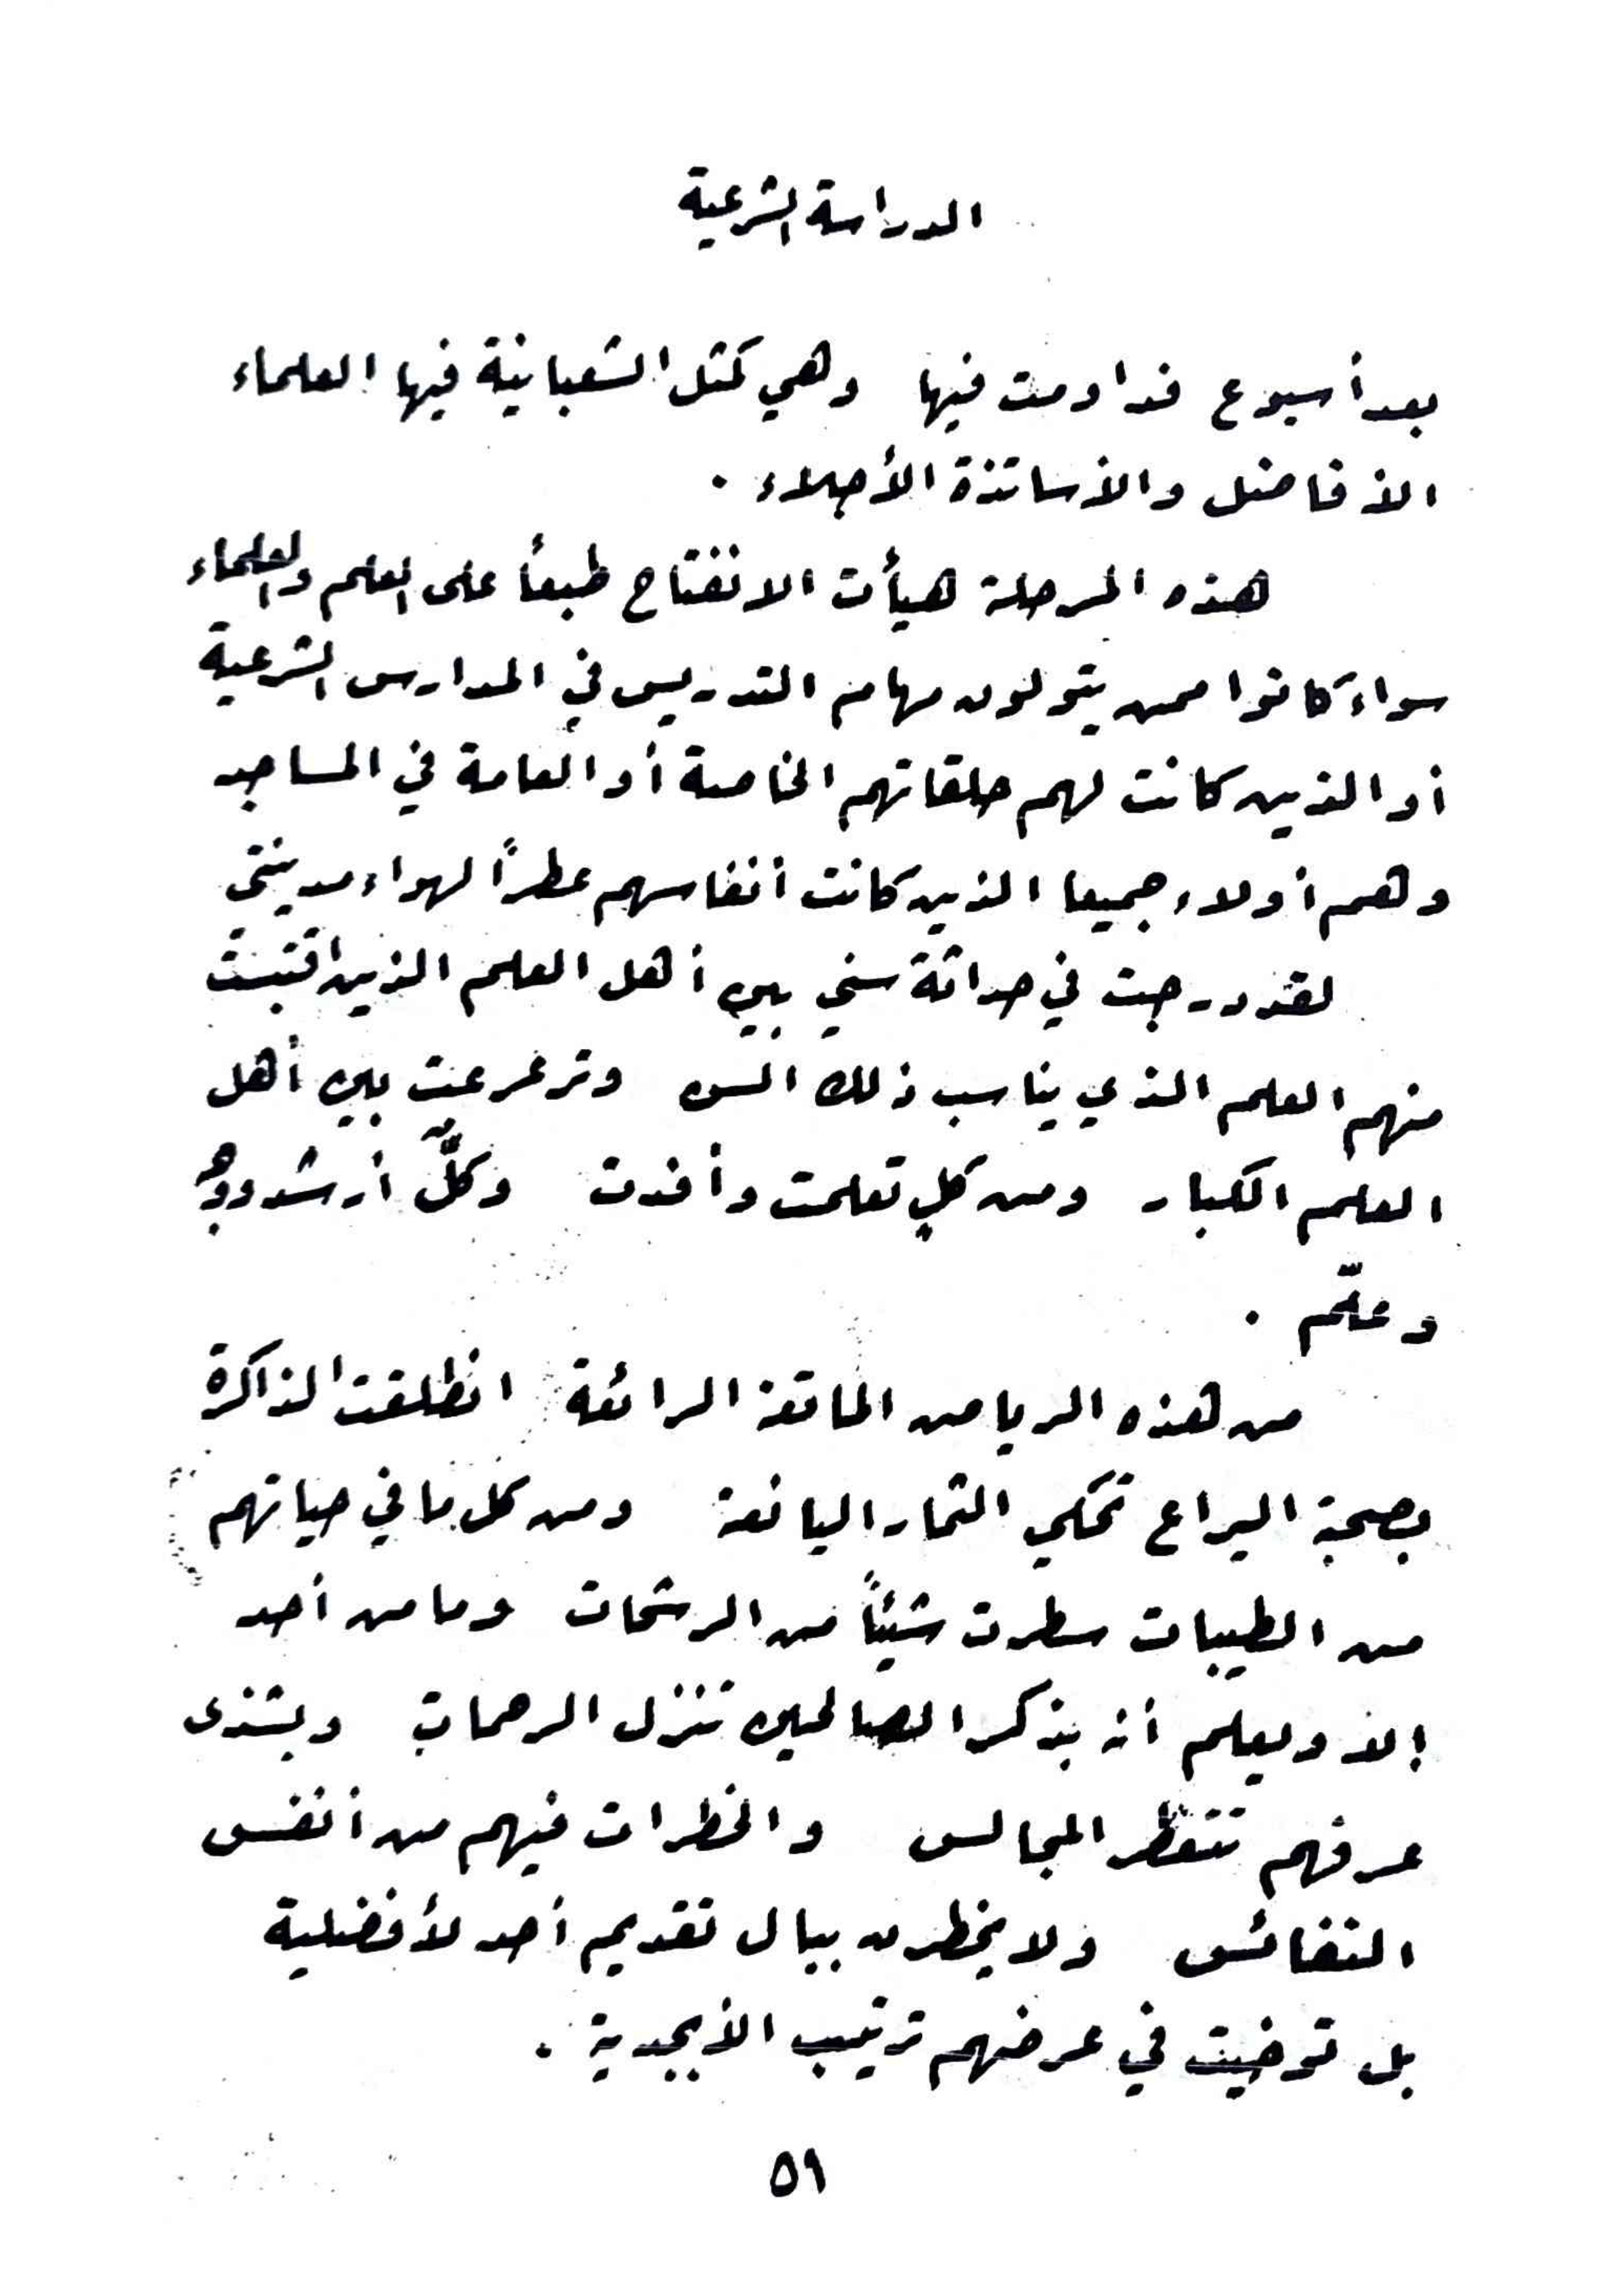 الدراسة الشرعية
بعد أسبوع فداومت فيها وهي كمثل الشعبانية فيها العلماء
الأفاضل والأساتذة الأجلاء .
هذه المرحلة هيأت الانفتاح طبعاً على العلم والعلماء
سواءً كانوا ممن يتولون مهام التدريس في المدارس الشرعية
أو الذين كانت لهم حلقاتهم الخاصة أو العامة في المساجد
وهم أولاء جميعا الذين كانت أنفاسهم عطراً لهواء مدينتي
لقد درجت في حداثة سني بين أهل العلم الذين اقتبست
منهم العلم الذي يناسب ذلك السن وترعرعت بين أهل
العلم الكبار ومن كلٍ تعلمت وأفدت وكلٌّ أرشد ووجه
وعلّم .
من هذه الرياض الماتعة الرائعة انطلقت الذاكرة
بصحبة اليراع تحكي الثمار اليانعة ومن كل ما في حياتهم
من الطيبات سطرت شيئاً من الرشحات وما من أحد
إلا ويعلم أن بذكر الصالحين تنزل الرحمات وبشذى
عرفهم تتعطر المجالس والخطرات فيهم من أنفس
النفائس ولا يخطرن ببال تقديم أحد لأفضلية
بل توخيت في عرضهم ترتيب الأبجدية .
٥١